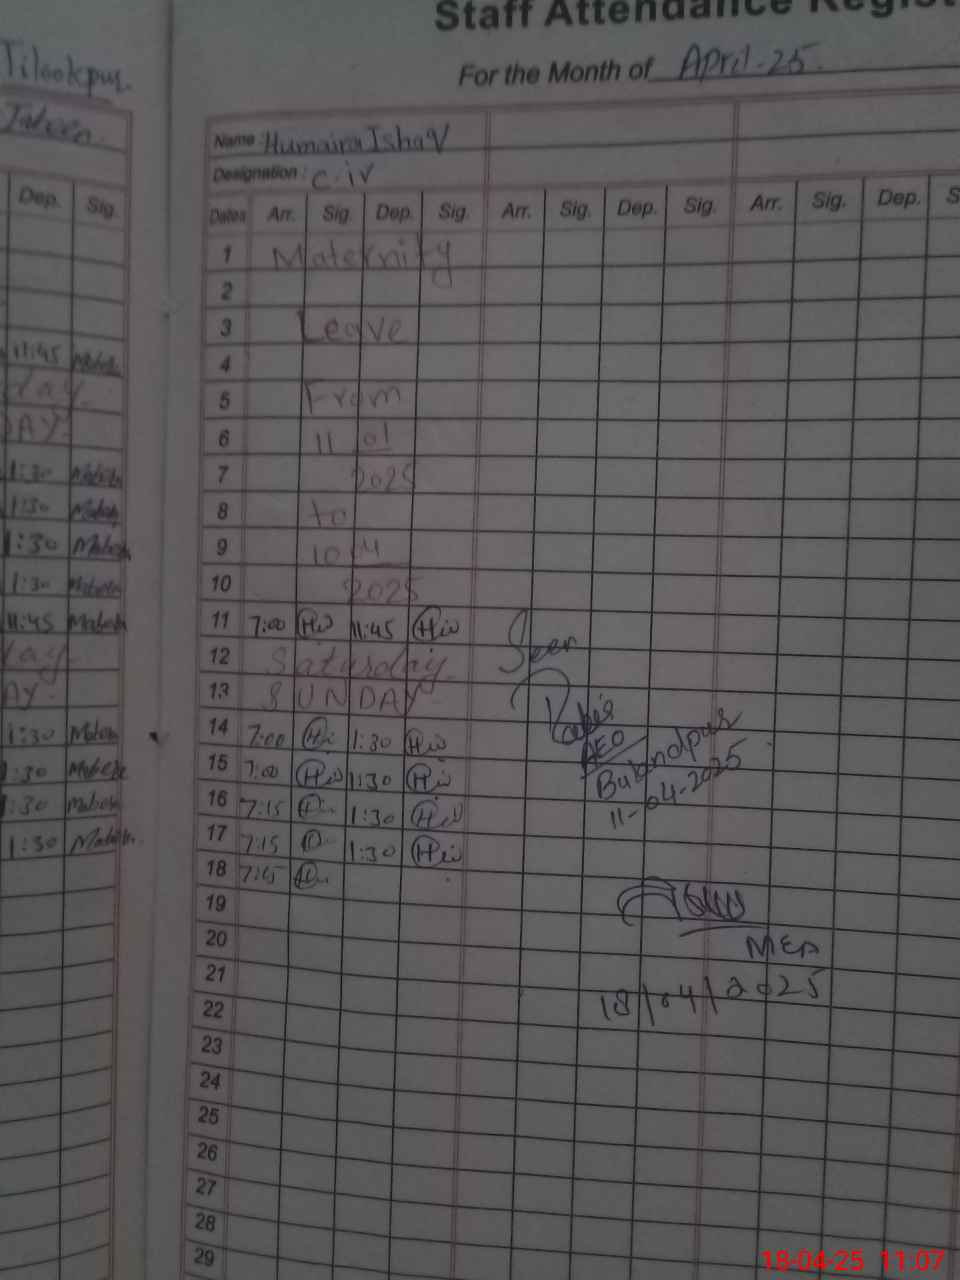 Staff Attendance Regist
For the Month of April-25
Tilookpur
Name: Humaira Ishaq
Designation: C.iv
Dep. Sig.
Dates Arr. Sig. Dep. Sig. Arr. Sig. Dep. Sig. Arr. Sig. Dep. S
1 Maternity
2
3 Leave
4
11:45
5 From
day
6 11 01
AY
7 2025
1:30
8 to
1:30
9 10 04
1:30
10 2025
1:30
11 7:00 11:45 Seen
11:45
12 Saturday
day
13 SUNDAY
AY.
14 7:00 1:30
1:30
AEO
15 7:00 1:30
:30
Bulandpur
11-04-2025
16 7:15 1:30
:30
17 7:15 1:30
1:30
18 7:15
19
20
MEA
21
18/04/2025
22
23
24
25
26
27
28
29
18-04-25 11:07